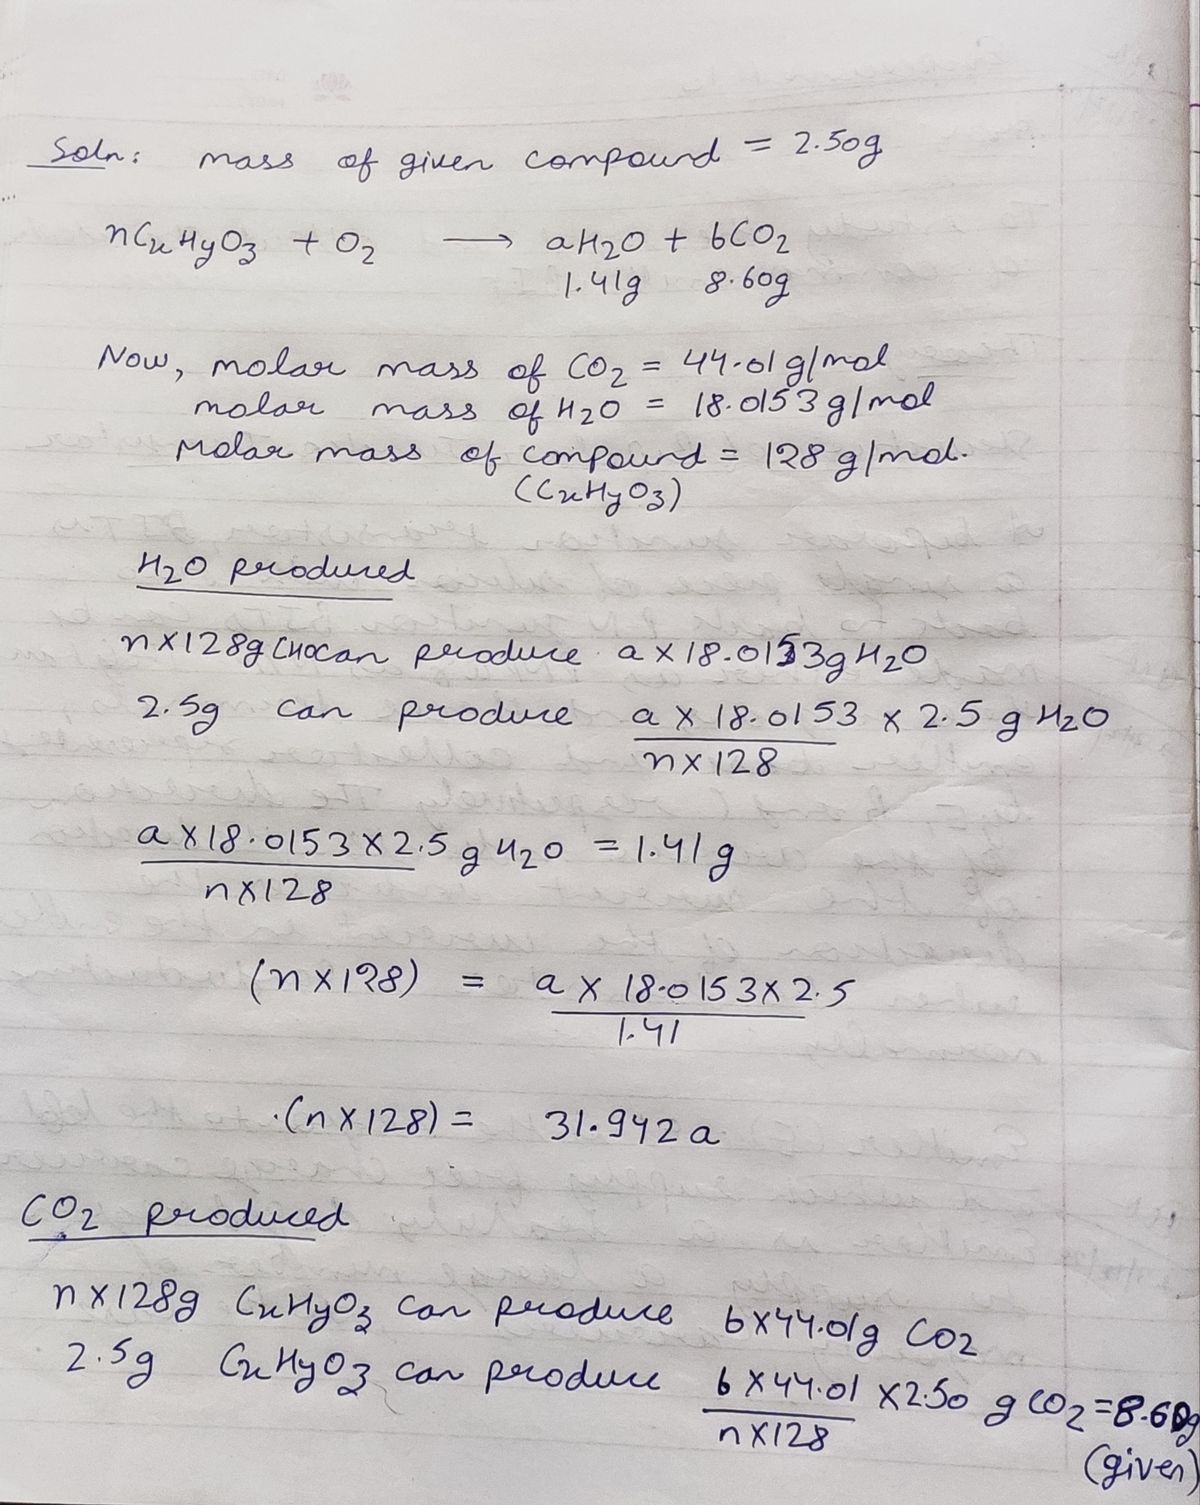 Soln: mass of given compound = 2.50g
nCxHyO3 + O2 → aH2O + bCO2
1.41g 8.60g
Now, molar mass of CO2 = 44.01 g/mol
molar mass of H2O = 18.0153 g/mol
Molar mass of compound = 128 g/mol.
(CxHyO3)
H2O produced
n×128g CHO can produce a×18.0153g H2O
2.5g can produce a × 18.0153 × 2.5 g H2O
n×128
a×18.0153×2.5 g H2O = 1.41g
n×128
(n×128) = a × 18.0153×2.5
1.41
(n×128) = 31.942a
CO2 produced
n×128g CxHyO3 can produce b×44.01g CO2
2.5g CxHyO3 can produce b×44.01 ×2.50 g CO2 = 8.60g
n×128
(given)